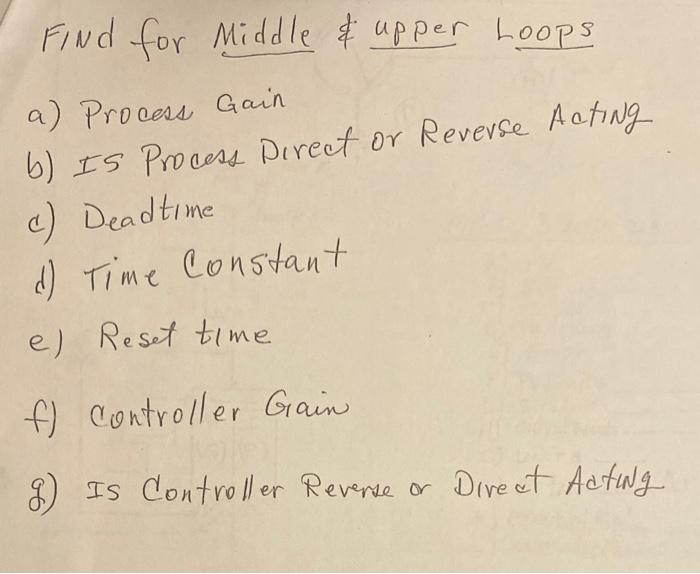 Find for Middle & upper Loops
a) Process Gain
b) Is Process Direct or Reverse Acting
c) Deadtime
d) Time Constant
e) Reset time
f) Controller Gain
g) Is Controller Reverse or Direct Acting